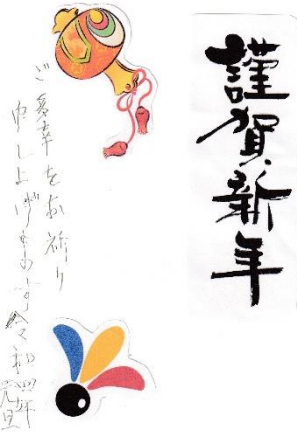 謹賀新年
ご多幸をお祈り
申し上げます
令和四年
元旦